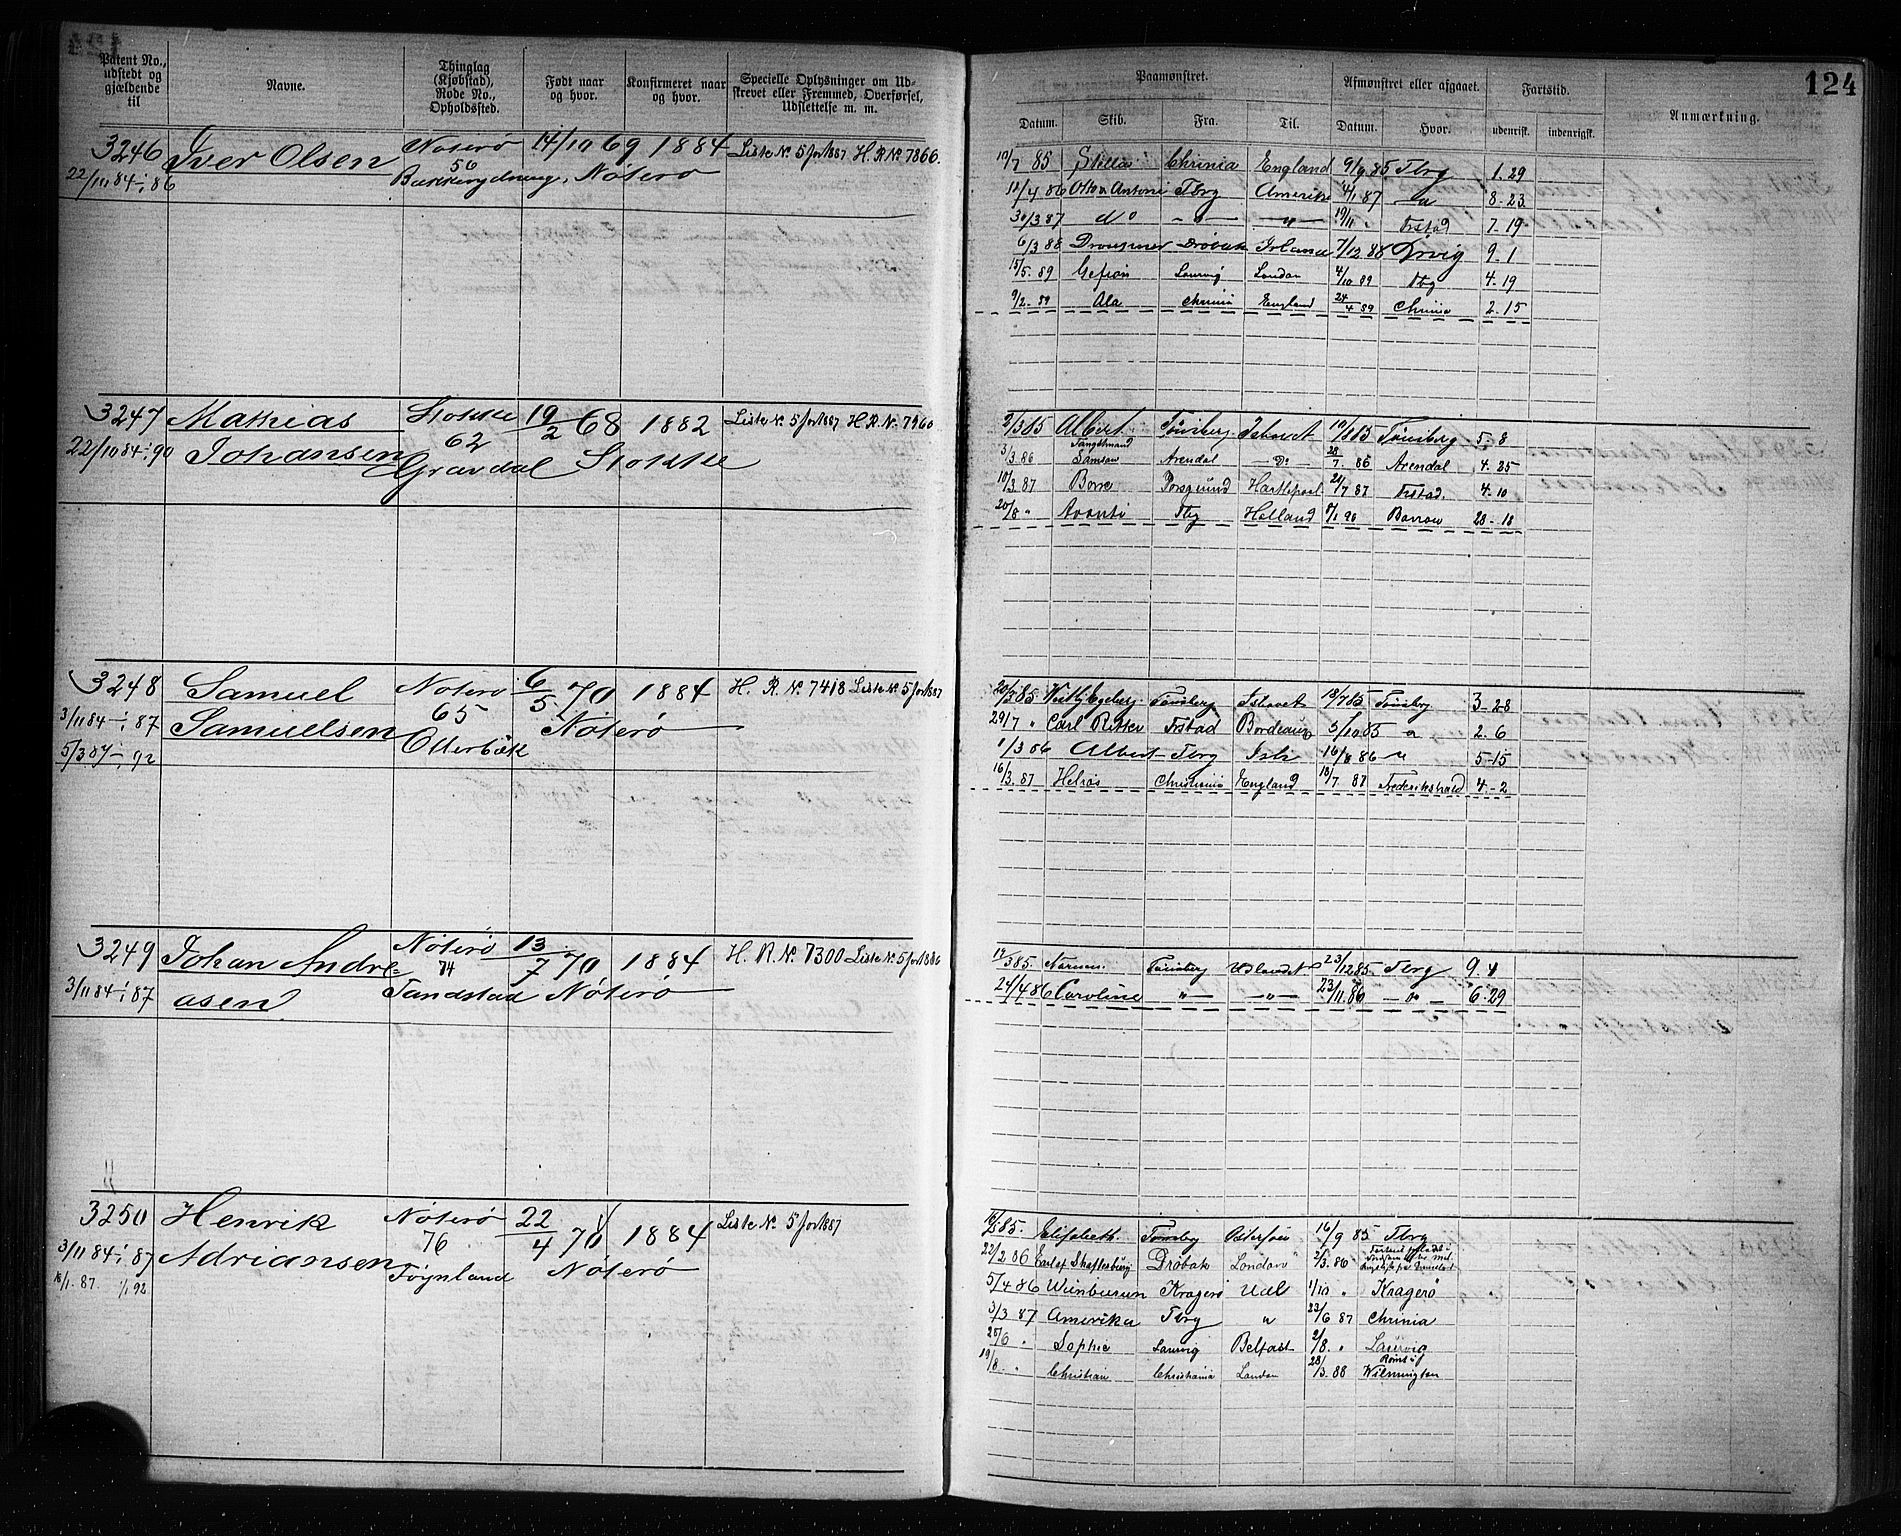 124
Patent No., udstedt og gjældende til
Navne.
Thinglag (Kjøbstad), Rode No., Opholdssted.
Født naar og hvor.
Konfirmeret naar og hvor.
Specielle Oplysninger om Udskrevet eller Fremmed, Overførsel, Udslettelse m. m.
Paamønstret.
Afmønstret eller afgaaet.
Fartstid.
Anmærkning.
Datum. Skib. Fra. Til. Datum. Hvor. udenrikst. indenrigst.
3246 Iver Olsen Noterö 14/10 69 1884 Liste No 5 for 1887 H. R. No 7866.
22/11 84 - 86 56 Nöterö
10/7 85 Stella Chrinia England 9/9 85 Tbrg 1. 29
Otto & Antonie Tbrg Amerika 4/1 87 8-23
30/3 87 Do 19/11 Frstad 7. 19
6/3 88 Draupner Dröbak Irland 7/12 88 Drvig 9. 1
15/5. 89 Gefion Laurvig London 4/10 89 Tbg 4. 19
9/2. 89 Ala Chrinia England 24/4 89 Chrinia 2. 15
3247 Mathias Stokke 19/2 68 1882 Liste No 5 for 1887 H. R. No. 7960
22/10 84 - 90 Johansen 62 Gravdal Stokke
2/3 85 Albert Tönsberg Ishavet 10/8 85 Tönsberg 5. 8
3/3. 86 Fangstmand Samson Arendal Do 28/7. 86 Arendal 4. 25
10/3. 87 Borre Porsgrund Hartlepool 21/7 87 Frstad. 4. 10
20/8 " Avante Tbg Holland 8/1 90 Barrow 28-18
3248 Samuel Noterö 6/5 70 1884 H. R. No. 7418 Liste No 5 for 1887
3/11 84 - 87 Samuelsen 65 Nöterö
5/3 87 - 92 Otterbæk
20/3 85. Tönsberg Ishavet 18/7 85 Tönsberg 3-28
29/7 " Carl Ritter Frstad Bordeaux 5/10 85 " 2. 6
1/3 86 Albert Tbrg Ish 16/8 86 " 5-15
16/3. 87 Helios Christiania England 18/7 87 Frederikshald 4. -2
3249 Johan Andre- Nöterö 13/7 70 1884 H. R. No. 7300 Liste No 5 for 1886
3/11 84 - 87 asen 74 Tandstad Nöterö
Tönsberg Udlandet 23/12 85. Tbrg 9. 4
24/4 86 Caroline 23/11. 86 6-29
3250 Henrik Nöterö 22/4 70 1884 Liste No. 5 for 1887
3/11 84 - 87 Adriansen 76 Nöterö
18/1. 87. 1/1 92 Töynland
Elisabeth. Tönsby Östersöen 16/9 85 Tbrg
22/2 86 Earl of Shaftesbury Dröbak London 2/3. 86
5/4 86 Kragerö Udl 1/10 " Kragerö
3/3 87 Amerika Tbrg " 23/6 87 Chrinia
25/6 " Sophie Laurvig Belfast 2/8. " Laurvig
19/8. " Christian Christiania London 28/3. 88 Römt i Wilmington